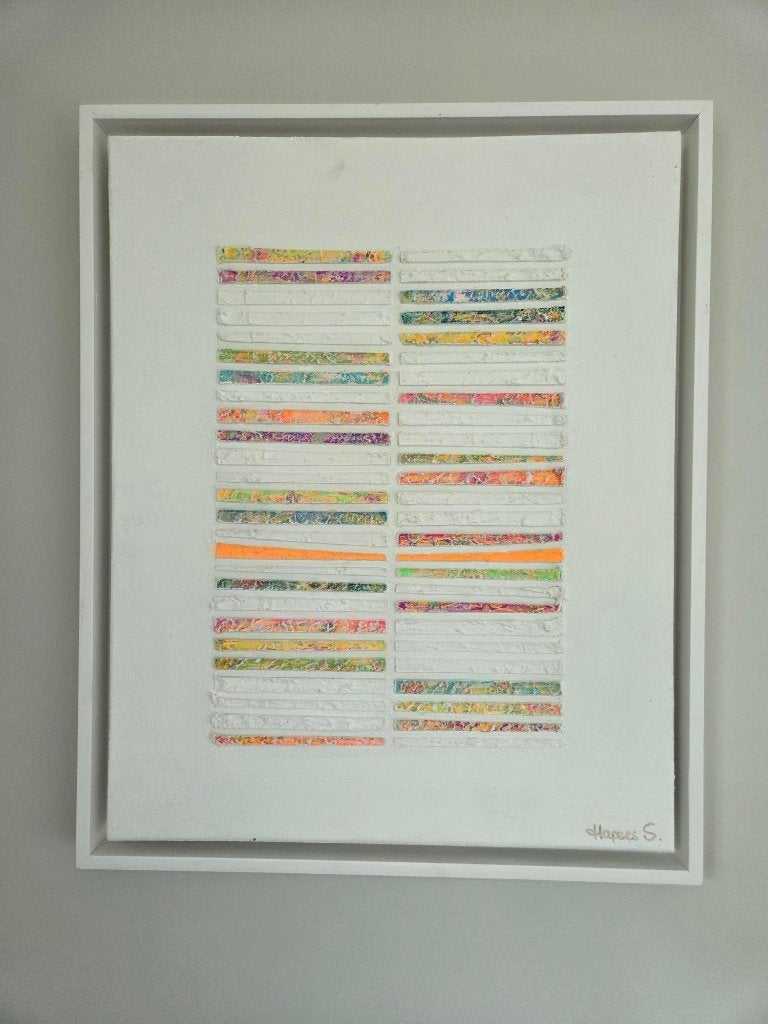 Hapees S.